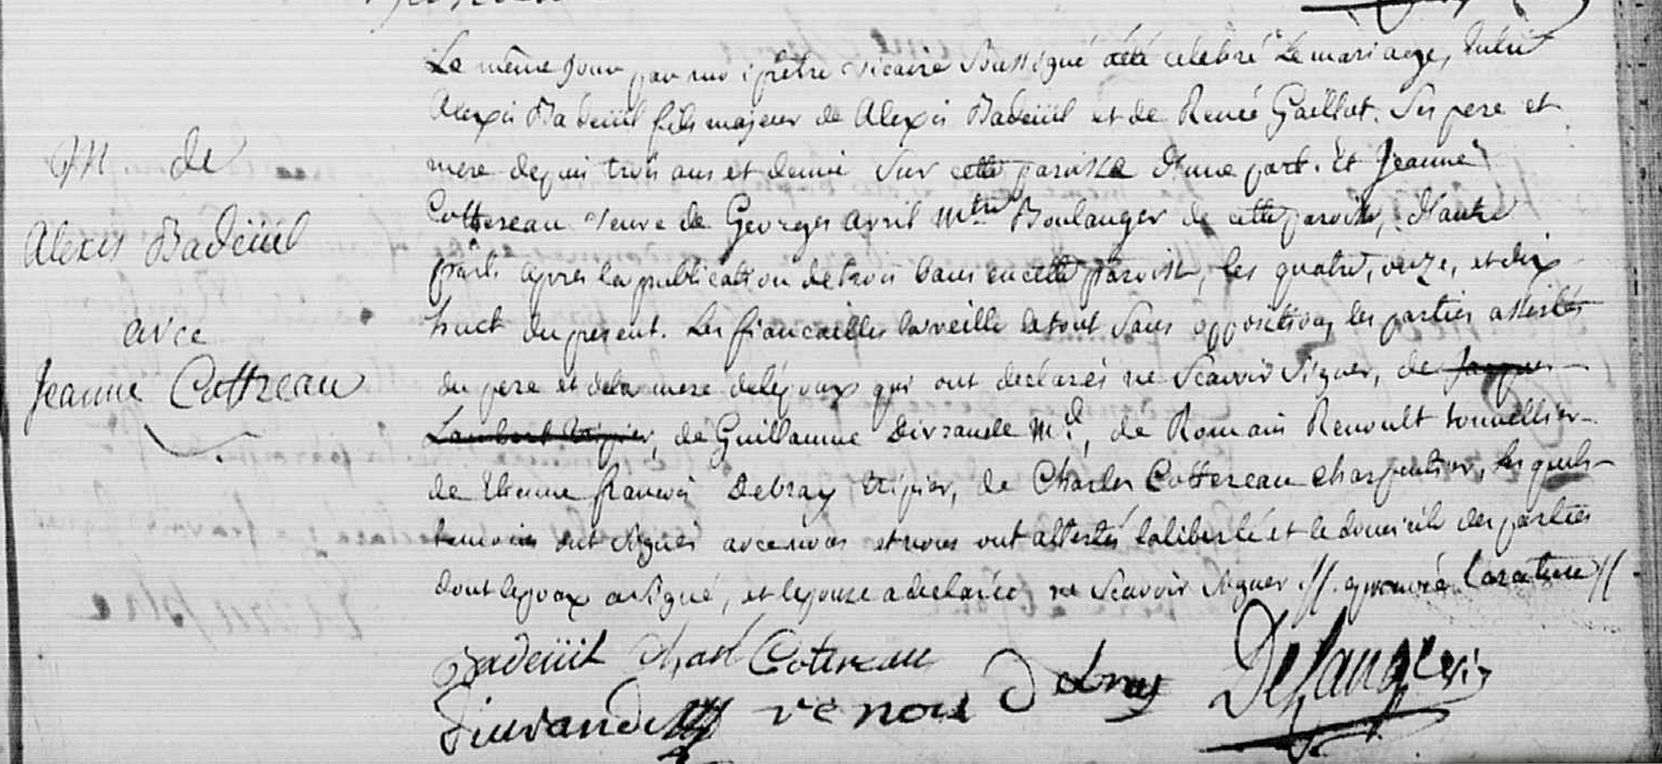 M. de
Alexis Badeüil
avec
Jeanne Cottreau
Le même jour par moi prêtre vicaire Soussigné a été celebré Le mariage, Entre
Alexis Badeüil fils majeur de Alexis Badeüil et de Renée Gaillot. Ses pere et
mere depuis trois ans et demie sur cette paroisse d'une part. Et Jeanne
Cottereau veuve de Georges avril mtre Boulanger de cette paroisse, d'autre
part. après la publication de trois bans en cette paroisse, les quatre, onze, et dix
huct du present. Les fiancailles la veille le tout Sans opposition, les parties assistés
du pere et de la mere de lépoux qui ont declarés ne Scavoir Signer, de Jacques
Lambert tripier, de Guillaume Divrande md, de Romain Renoult tonnellier
de Etienne francois Debray tripier, de Charles Cottereau charpentier, lesquels
temoins ont signés avec nous et nous ont attestés la liberté et le domicile des parties
dont lepoux a signé, et lepouse a declarée ne Scavoir Signer //. approuvé la rature //
Badeüil Charl Cotereau
Diurande renou Debray